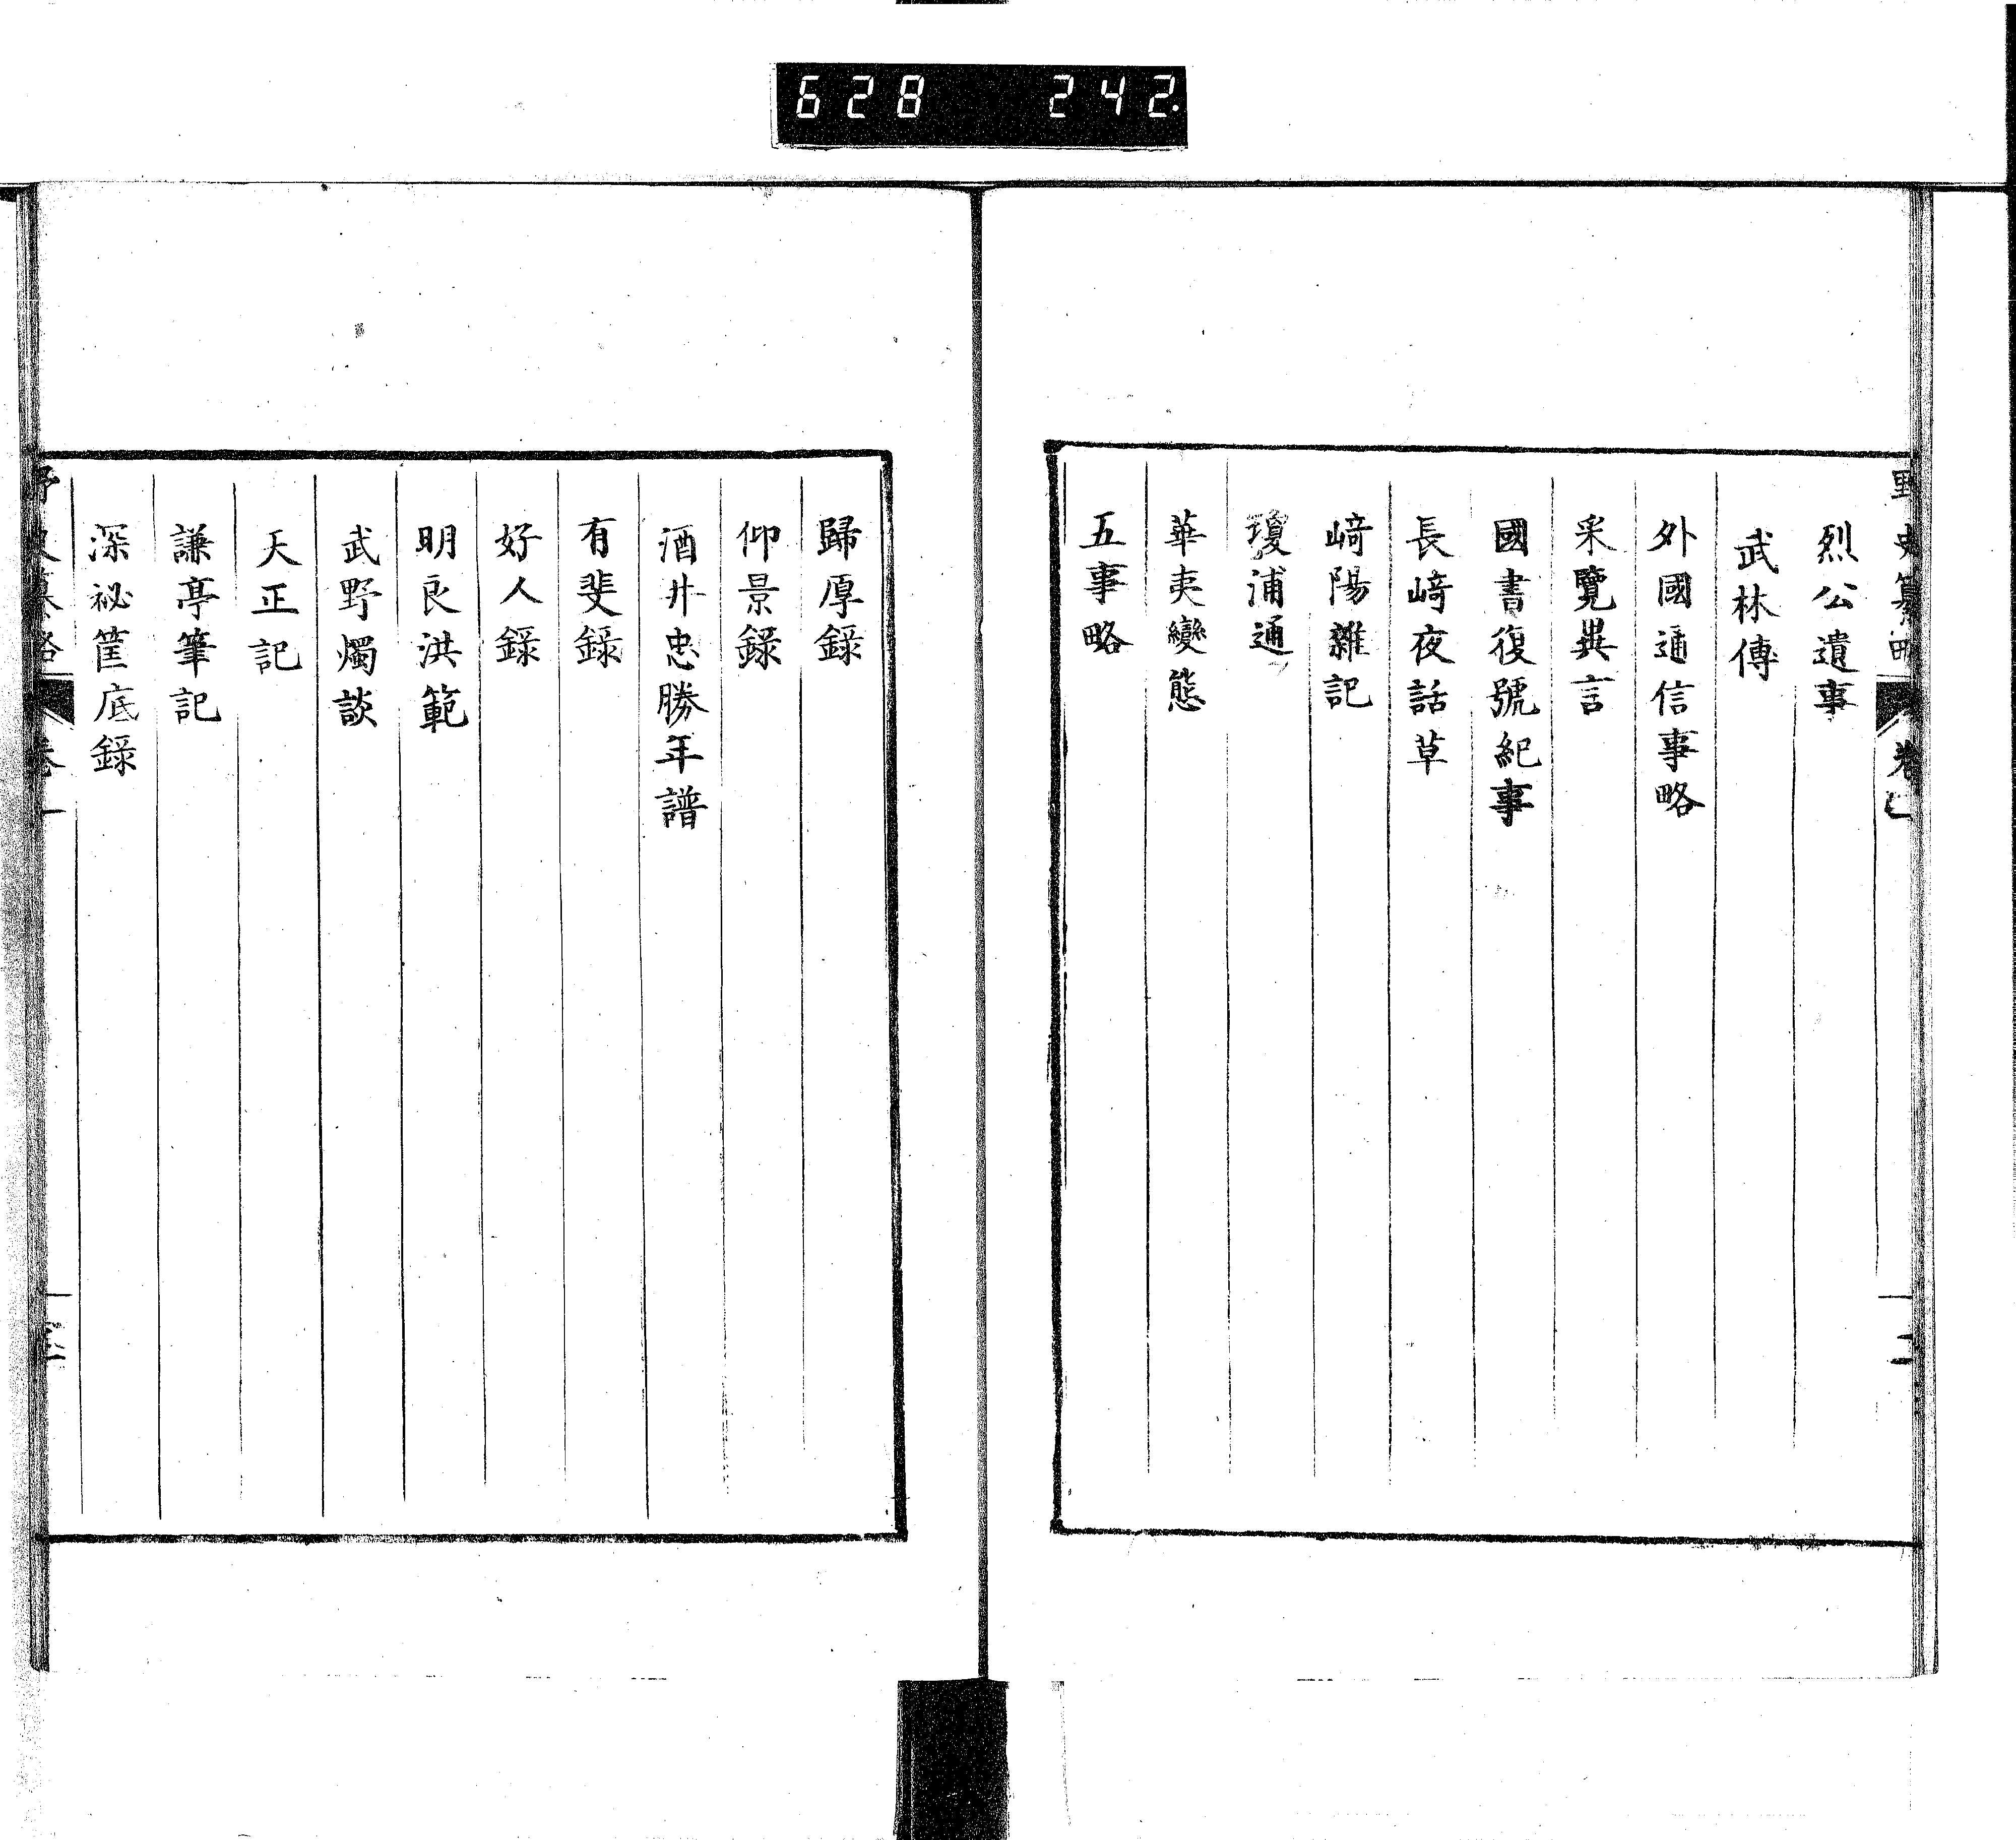 628 242
烈公遺事
武林傳
外國通信事略
采覽異言
國書復號紀事
長﨑夜話草
﨑陽雜記
瓊浦通
華夷變態
五事略
歸厚錄
仰景錄
酒井忠勝年譜
有斐錄
好人錄
明良洪範
武野燭談
天正記
謙亭筆記
深祕筐底錄